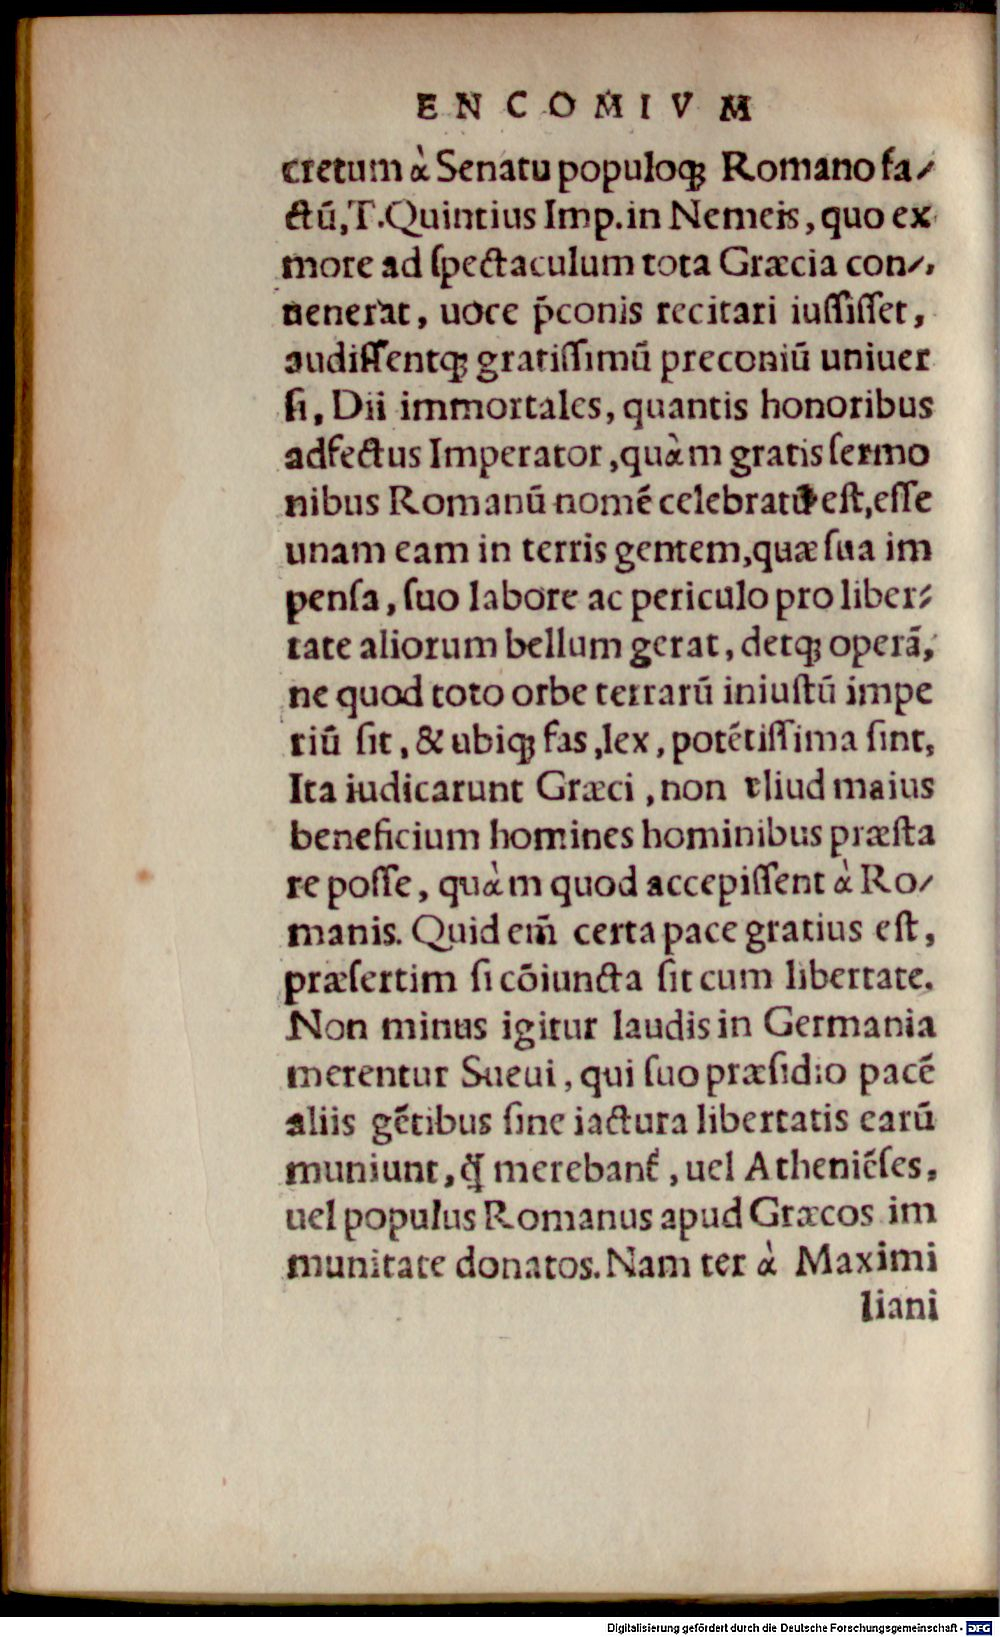 ENCOMIVM
cretum à Senatu populoq; Romano fa-
ctũ, T. Quintius Imp. in Nemeis, quo ex
more ad ſpectaculum tota Græcia con-
uenerat, uoce p̃conis recitari iuſſiſſet,
audiſſentq; gratiſſimũ preconiũ uniuer
ſi, Dii immortales, quantis honoribus
adfectus Imperator, quàm gratis ſermo
nibus Romanũ nomẽ celebratũ eſt, eſſe
unam eam in terris gentem, quæ ſua im
penſa, ſuo labore ac periculo pro liber-
tate aliorum bellum gerat, detq; operã,
ne quod toto orbe terrarũ iniuſtũ impe
riũ ſit, & ubiq; fas, lex, potẽtiſſima ſint,
Ita iudicarunt Græci, non aliud maius
beneficium homines hominibus præſta
re poſſe, quàm quod accepiſſent à Ro-
manis. Quid em̃ certa pace gratius eſt,
præſertim ſi cõiuncta ſit cum libertate.
Non minus igitur laudis in Germania
merentur Sueui, qui ſuo præſidio pacẽ
aliis gẽtibus ſine iactura libertatis earũ
muniunt, q̃ merebant᷑, uel Atheniẽſes,
uel populus Romanus apud Græcos im
munitate donatos. Nam ter à Maximi
liani
Digitalisierung gefördert durch die Deutsche Forschungsgemeinschaft - DFG